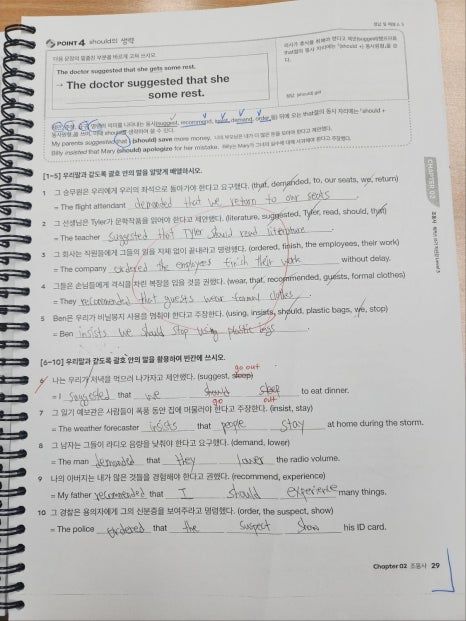 POINT 4 should의 생략
다음 문장의 밑줄친 부분을 바르게 고쳐 쓰시오.
The doctor suggested that she gets some rest.
→ The doctor suggested that she
some rest.
정답 should get
My parents suggested (that) (should) save more money.
Billy insisted that Mary (should) apologize for her mistake.
[1-5] 우리말과 같도록 괄호 안의 말을 알맞게 배열하시오.
1 그 승무원은 우리에게 우리의 좌석으로 돌아가야 한다고 요구했다. (that, demanded, to, our seats, we, return)
= The flight attendant demanded that we return to our seats.
2 그 선생님은 Tyler가 문학작품을 읽어야 한다고 제안했다. (literature, suggested, Tyler, read, should, that)
= The teacher suggested that Tyler should read literature.
3 그 회사는 직원들에게 그들의 일을 지체 없이 끝내라고 명령했다. (ordered, finish, the employees, their work)
= The company ordered the employees finish their work without delay.
4 그들은 손님들에게 격식을 차린 복장을 입을 것을 권했다. (wear, that, recommended, guests, formal clothes)
= They recommended that guests wear formal clothes.
5 Ben은 우리가 비닐봉지 사용을 멈춰야 한다고 주장한다. (using, insists, should, plastic bags, we, stop)
= Ben insists we should stop using plastic bags.
[6-10] 우리말과 같도록 괄호 안의 말을 활용하여 빈칸에 쓰시오.
go out
6 나는 우리가 저녁을 먹으러 나가자고 제안했다. (suggest, sleep)
= I suggested that we should sleep to eat dinner.
go out
7 그 일기 예보관은 사람들이 폭풍 동안 집에 머물러야 한다고 주장한다. (insist, stay)
= The weather forecaster insists that people stay at home during the storm.
8 그 남자는 그들이 라디오 음량을 낮춰야 한다고 요구했다. (demand, lower)
= The man demanded that they lower the radio volume.
9 나의 아버지는 내가 많은 것들을 경험해야 한다고 권했다. (recommend, experience)
= My father recommended that I should experience many things.
10 그 경찰은 용의자에게 그의 신분증을 보여주라고 명령했다. (order, the suspect, show)
= The police ordered that the suspect show his ID card.
CHAPTER 02
Chapter 02 조동사 29